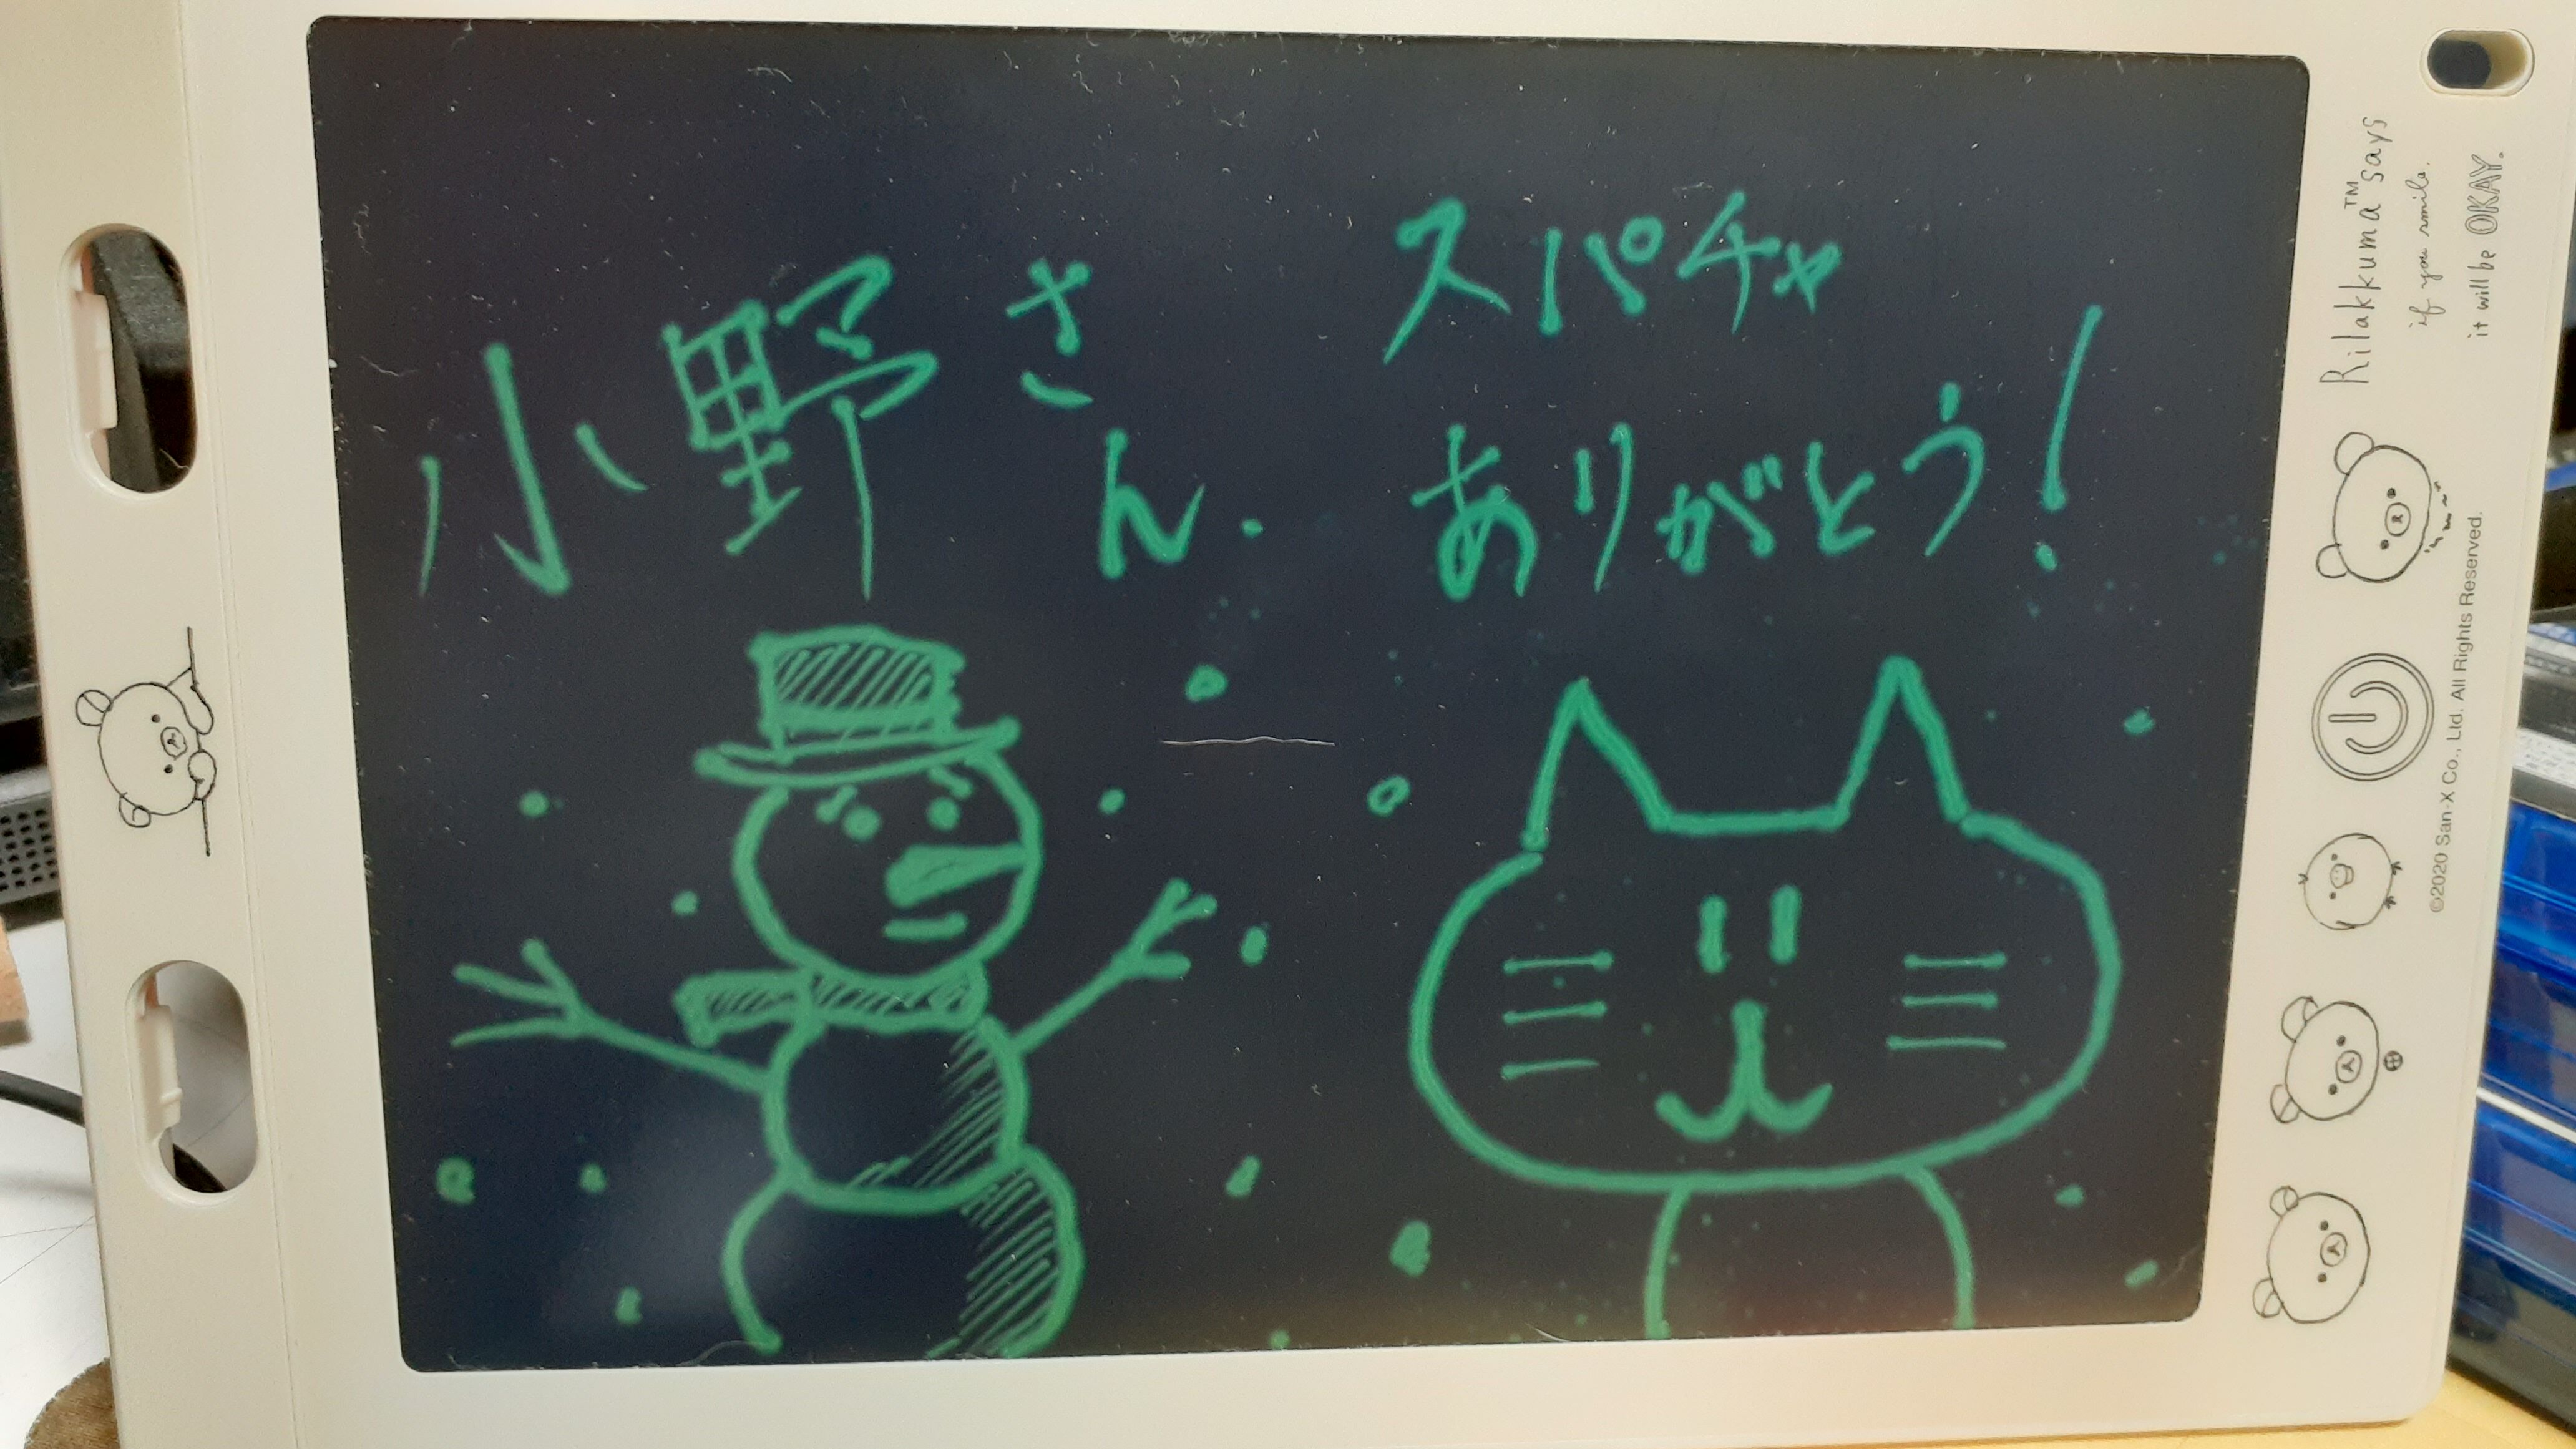 小野さん.
スパチャ
ありがとう!
Rilakkuma™ says
if you smile.
it will be OKAY.
©2020 San-X Co., Ltd. All Rights Reserved.